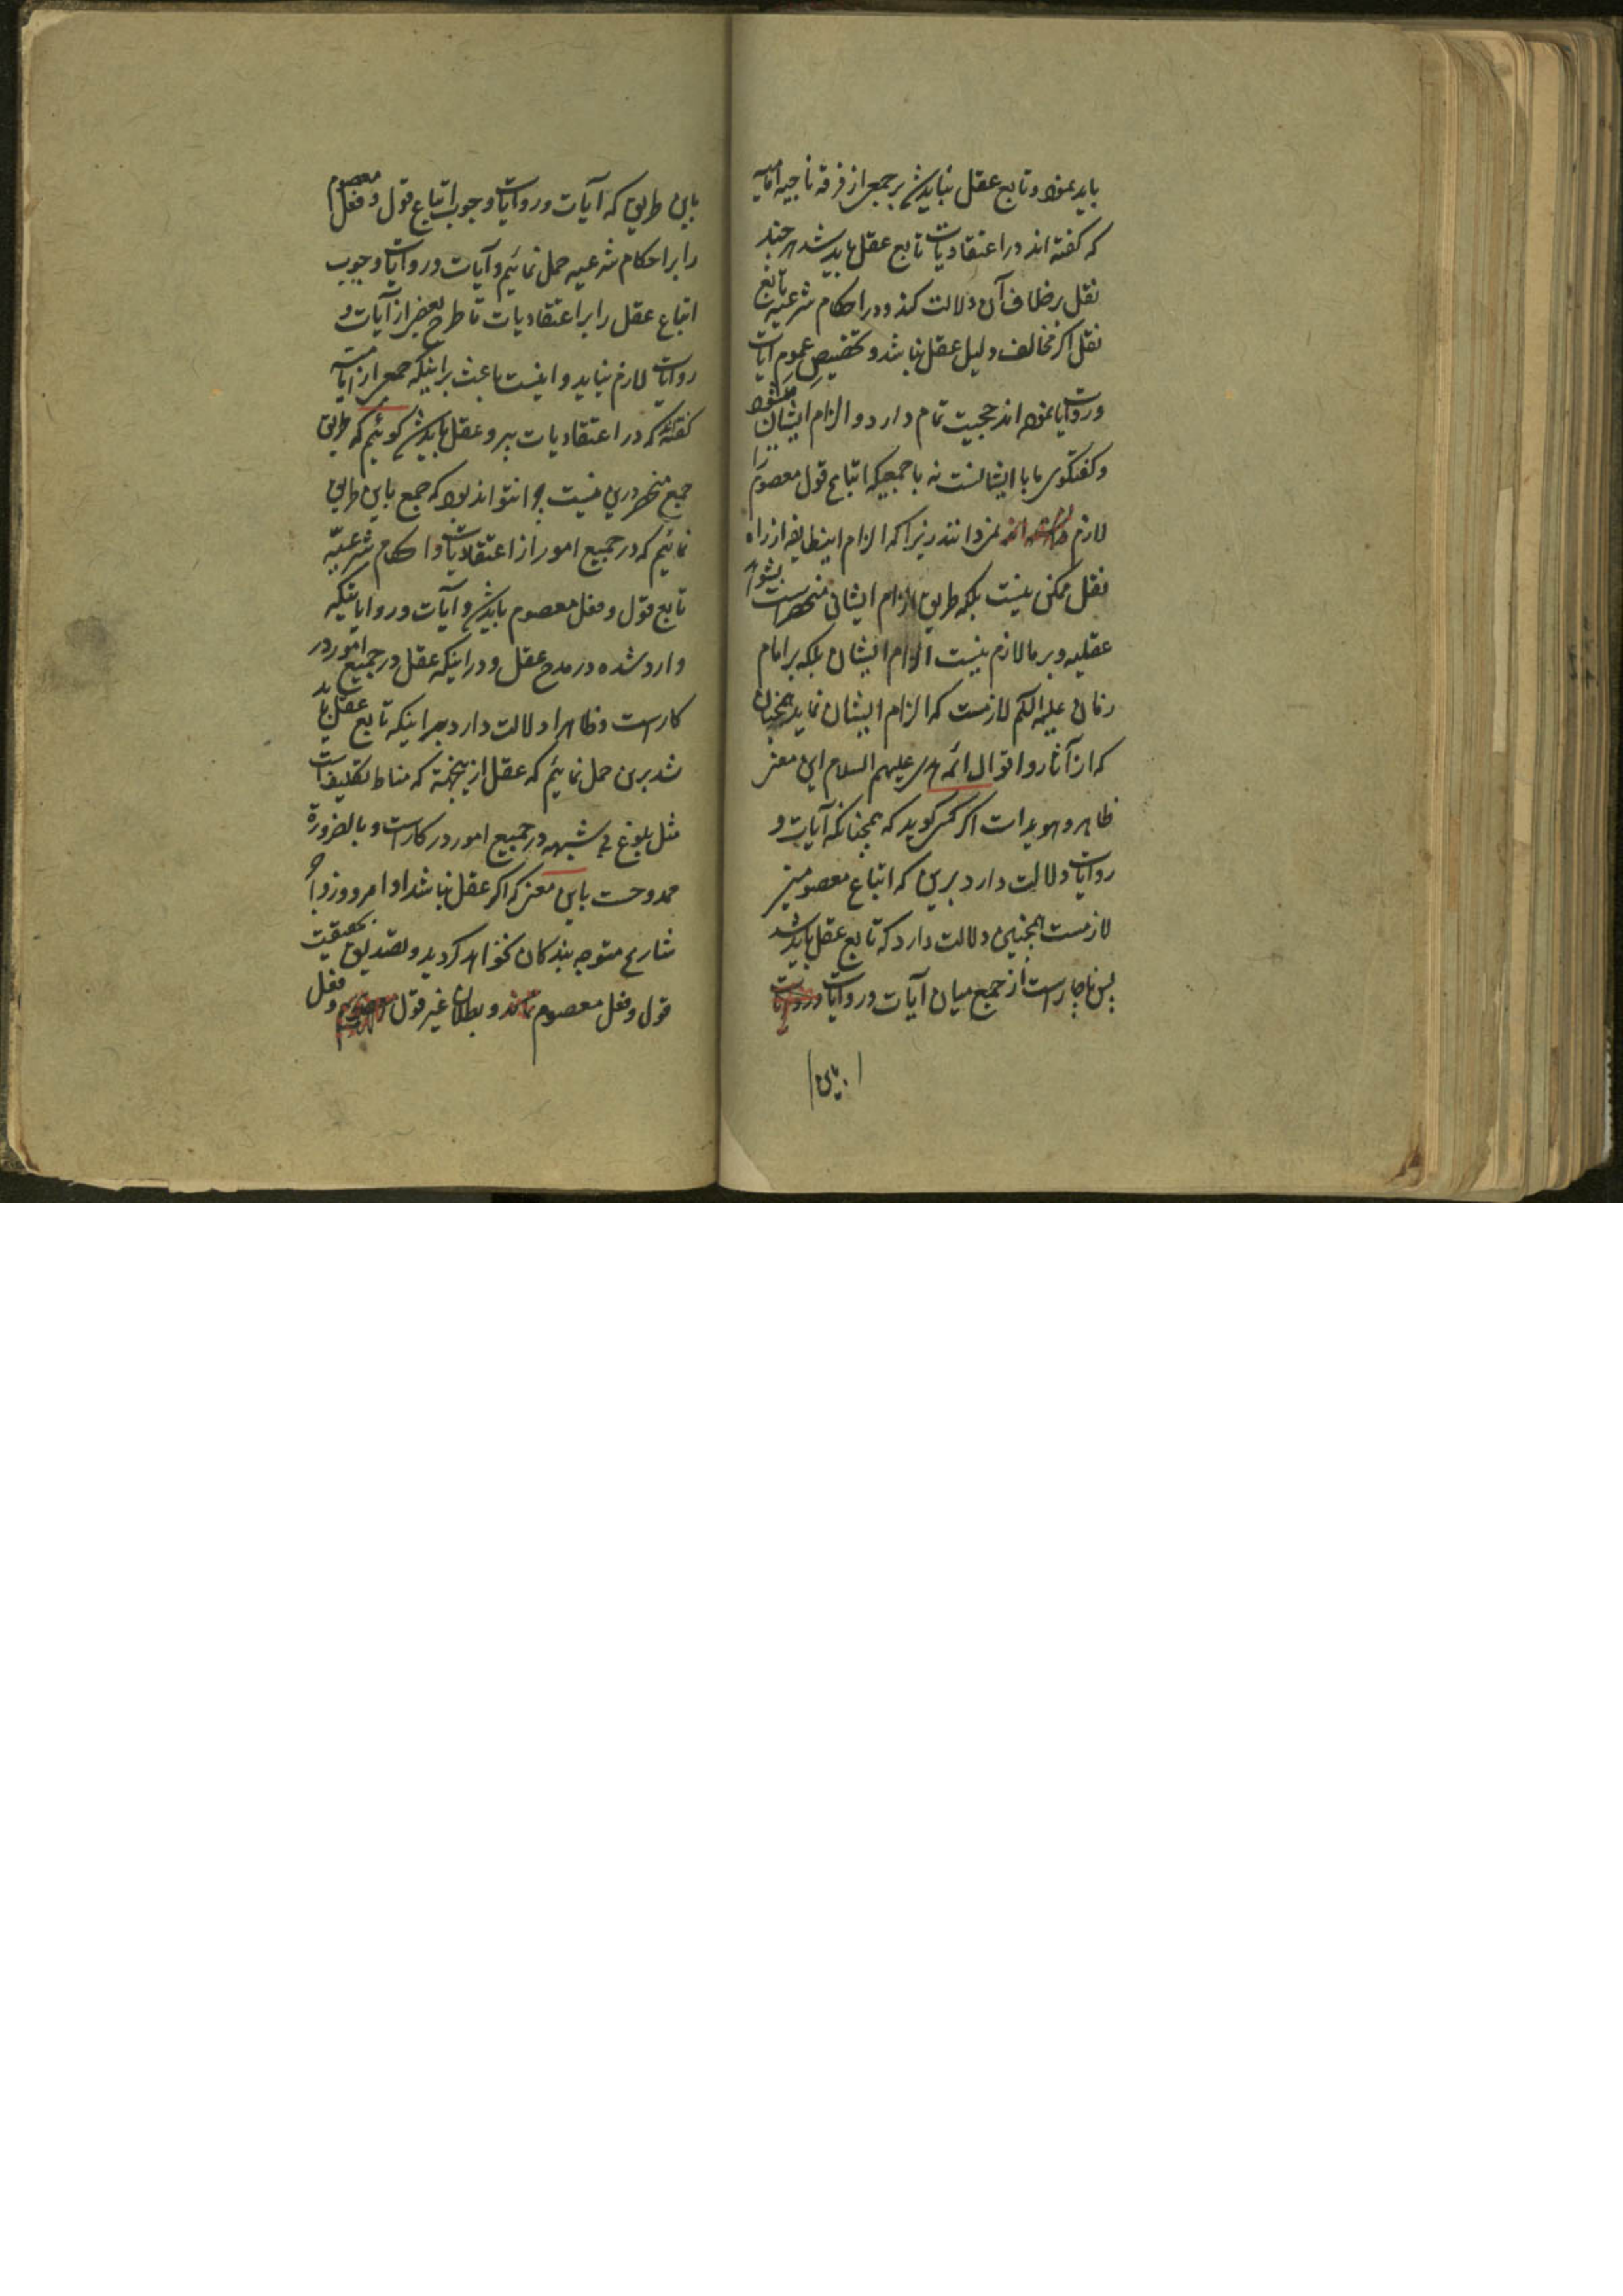 باید نمود و تابع عقل نباید شد بر جمعی از فرقه ناجیه امامیه
که گفته اند در اعتقادیات تابع عقل باید شد هر چند
نقل بر خلاف آن دلالت کند و در احکام شرعیه تابع
نقل اگر مخالف دلیل عقل نباشد و تخصیص عموم آیات
و روایات نموده اند حجیت تمام دارد و الزام ایشان میشود
و گفتگوی ما با ایشانست نه با جمعیکه اتباع قول معصوم را
لازم نمیدانند زیرا که الزام اینطایفه از راه
نقل ممکن نیست بلکه طریق الزام ایشان منحصر است بشواهد
عقلیه و بر ما لازم نیست الزام ایشان بلکه بر امام
زمان علیه السلم لازمست که الزام ایشان نماید همچنان
که از آثار و اقوال ائمه هدی علیهم السلام این معنی
ظاهر و هویداست اگر کسی گوید که همچنانکه آیات و
روایات دلالت دارد برین که اتباع معصومین
لازمست همچنین دلالت دارد که تابع عقل باید شد
پس ناچار است از جمع میان آیات و روایات
باین
باین طریق که آیات و روایات وجوب اتباع قول و فعل معصوم
را بر احکام شرعیه حمل نمائیم و آیات و روایات وجوب
اتباع عقل را بر اعتقادیات تا طرح بعضی از آیات و
روایات لازم نیاید و اینست باعث بر اینکه جمعی از امامیه
گفته اند که در اعتقادیات پیرو عقل باید شد گوئیم که طریق
جمع منحصر درین نیست چرا نتواند بود که جمع باین طریق
نمائیم که در جمیع امور از اعتقادیات و احکام شرعیه
تابع قول و فعل معصوم باید شد و آیات و روایاتیکه
وارد شده در مدح عقل و در اینکه عقل در جمیع امور در
کار است و ظاهرا دلالت دارد بر اینکه تابع عقل باید
شد برین حمل نمائیم که عقل ازینجهة که مناط تکلیف است
مثل بلوغ بی شبهه در جمیع امور در کار است و بالضرورة
ممدوحست باین معنی که اگر عقل نباشد اوامر و زواجر
شارع متوجه بندگان نخواهد گردید و تصدیق بحقیقت
قول و فعل معصوم و بطلان غیر قول و فعل